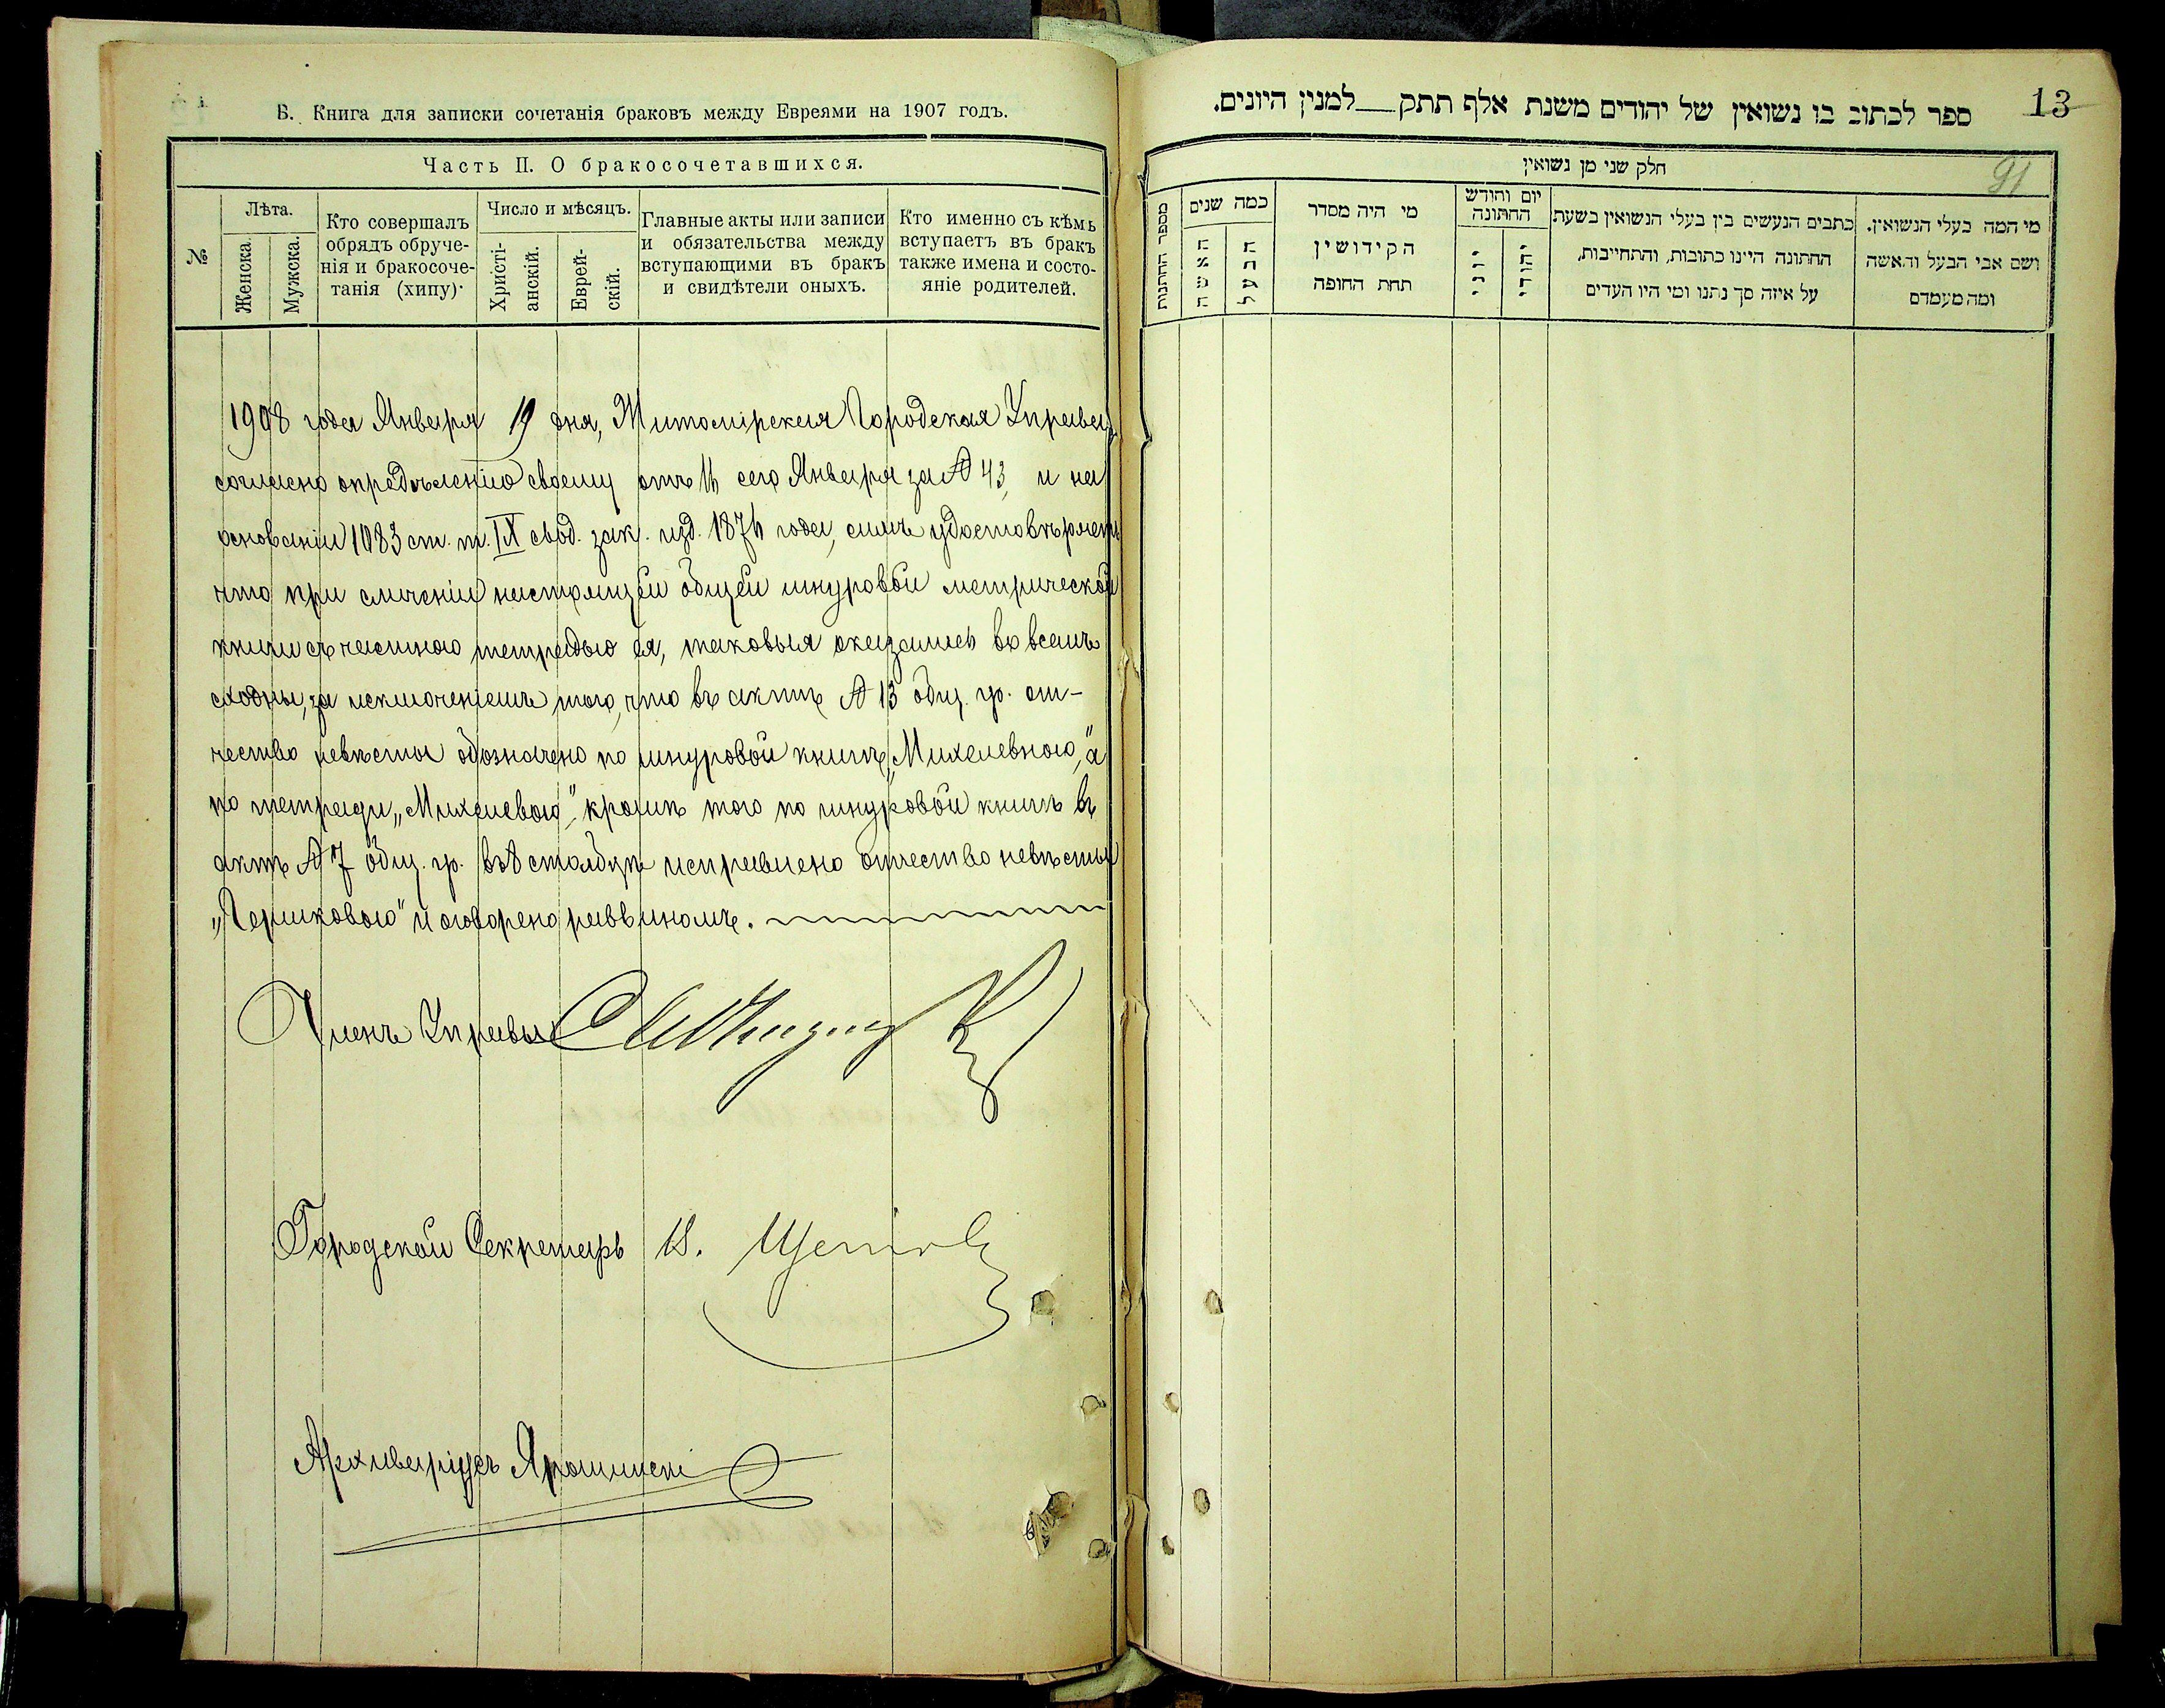 Б. Книга для записки сочетанія браковъ между Евреями на 1907 годъ.
Часть II. О бракосочетавшихся.
№
Лѣта.
Женска.
Мужска.
Кто совершалъ
обрядъ обруче-
нія и бракосоче-
танія (хипу)·
Число и мѣсяцъ.
Христі-
анскій.
Еврей-
скій.
Главные акты или записи
и обязательства между
вступающими въ бракъ
и свидѣтели оныхъ.
Кто именно съ кѣмъ
вступаетъ въ бракъ
также имена и состо-
яніе родителей.
1908 года Января 19 дня, Житомірская Городская Управа,
согласно опредѣленію своему отъ 16 сего Января за № 43, и на
основаніи 1083 ст. т. IX свод. зак. изд. 1876 года, симъ удостовѣряетъ
что при сличеніи настоящей общей шнуровой метрической
книги съ частною тетрадью ея, таковыя оказались во всемъ
сходны, за исключеніемъ того, что въ актѣ № 13 общ. гр. от-
чество невѣсты обозначено по шнуровой книгѣ „Михелевною," а
по тетради „Михелевою", кромѣ того по шнуровой книгѣ въ
актѣ № 7 общ. гр. въ 8 столбцѣ исправлено отчество невѣсты
„Гершковою" и оговорено раввиномъ.
Членъ Управы
Городской Секретарь
Архиваріусъ
ספר לכתוב בו נשואין של יהודים משנת אלף תתק למנין היונים.
13
91
חלק שני מן נשואין
מספר החתנות
כמה שנים
האשה
הבעל
מי היה מסדר
הקידושין
תחת החופה
יום וחודש
החתונה
יוני
יהודי
כתבים הנעשים בין בעלי הנשואין בשעת
החתונה היינו כתובות, והתחייבות,
על איזה סך נתנו ומי היו העדים
מי המה בעלי הנשואין.
ושם אבי הבעל והאשה
ומה מעמדם